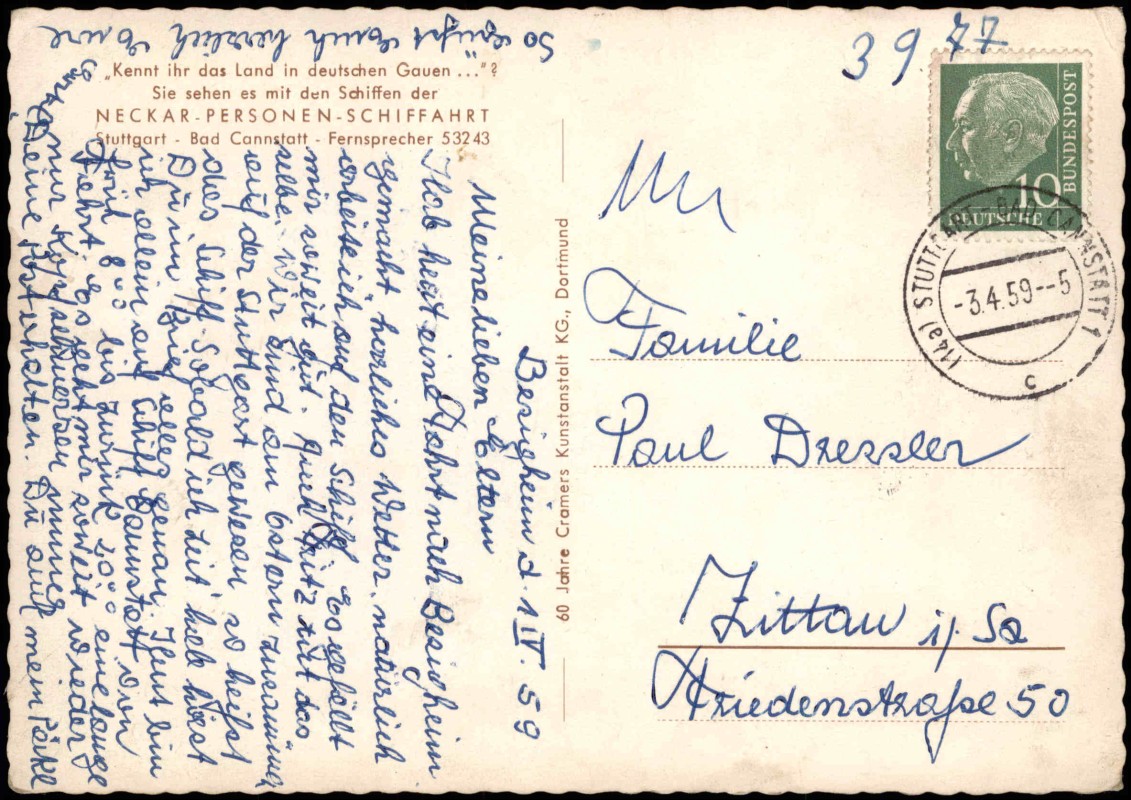 „Kennt ihr das Land in deutschen Gauen ..."?
Sie sehen es mit den Schiffen der
NECKAR-PERSONEN-SCHIFFAHRT
Stuttgart - Bad Cannstatt - Fernsprecher 53243
Besigheim d. 1 IV. 59
Meine lieben Eltern
Hab heut eine Fahrt nach Besigheim
gemacht herrliches Wetter, natürlich
arbeite ich auf den Schiff. Es gefällt
mir soweit gut. Auch Fritz tut das
selbe. Wir sind am Ostern zusammen
auf der Stuttgart gewesen so heißt
das Schiff. Sobald ich Zeit hab hörst
Du im Brief alles genau. Heut bin
ich allein auf Schiff Cannstatt von
früh 8 00 bis zurück 20 00 eine lange
Fahrt. Es geht mir soweit wieder
nur Kopfschmerzen immer
Deine Post erhalten. Du auch mein Päkl
So grüßt Euch herzlich Eure
60 Jahre Cramers Kunstanstalt KG., Dortmund
39.77
BUNDESPOST
10
DEUTSCHE
(14a) STUTTGART-BAD CANNSTATT 1
-3.4.59--5
c
An
Familie
Paul Dressler
Zittau i/ Sa
Friedenstraße 50